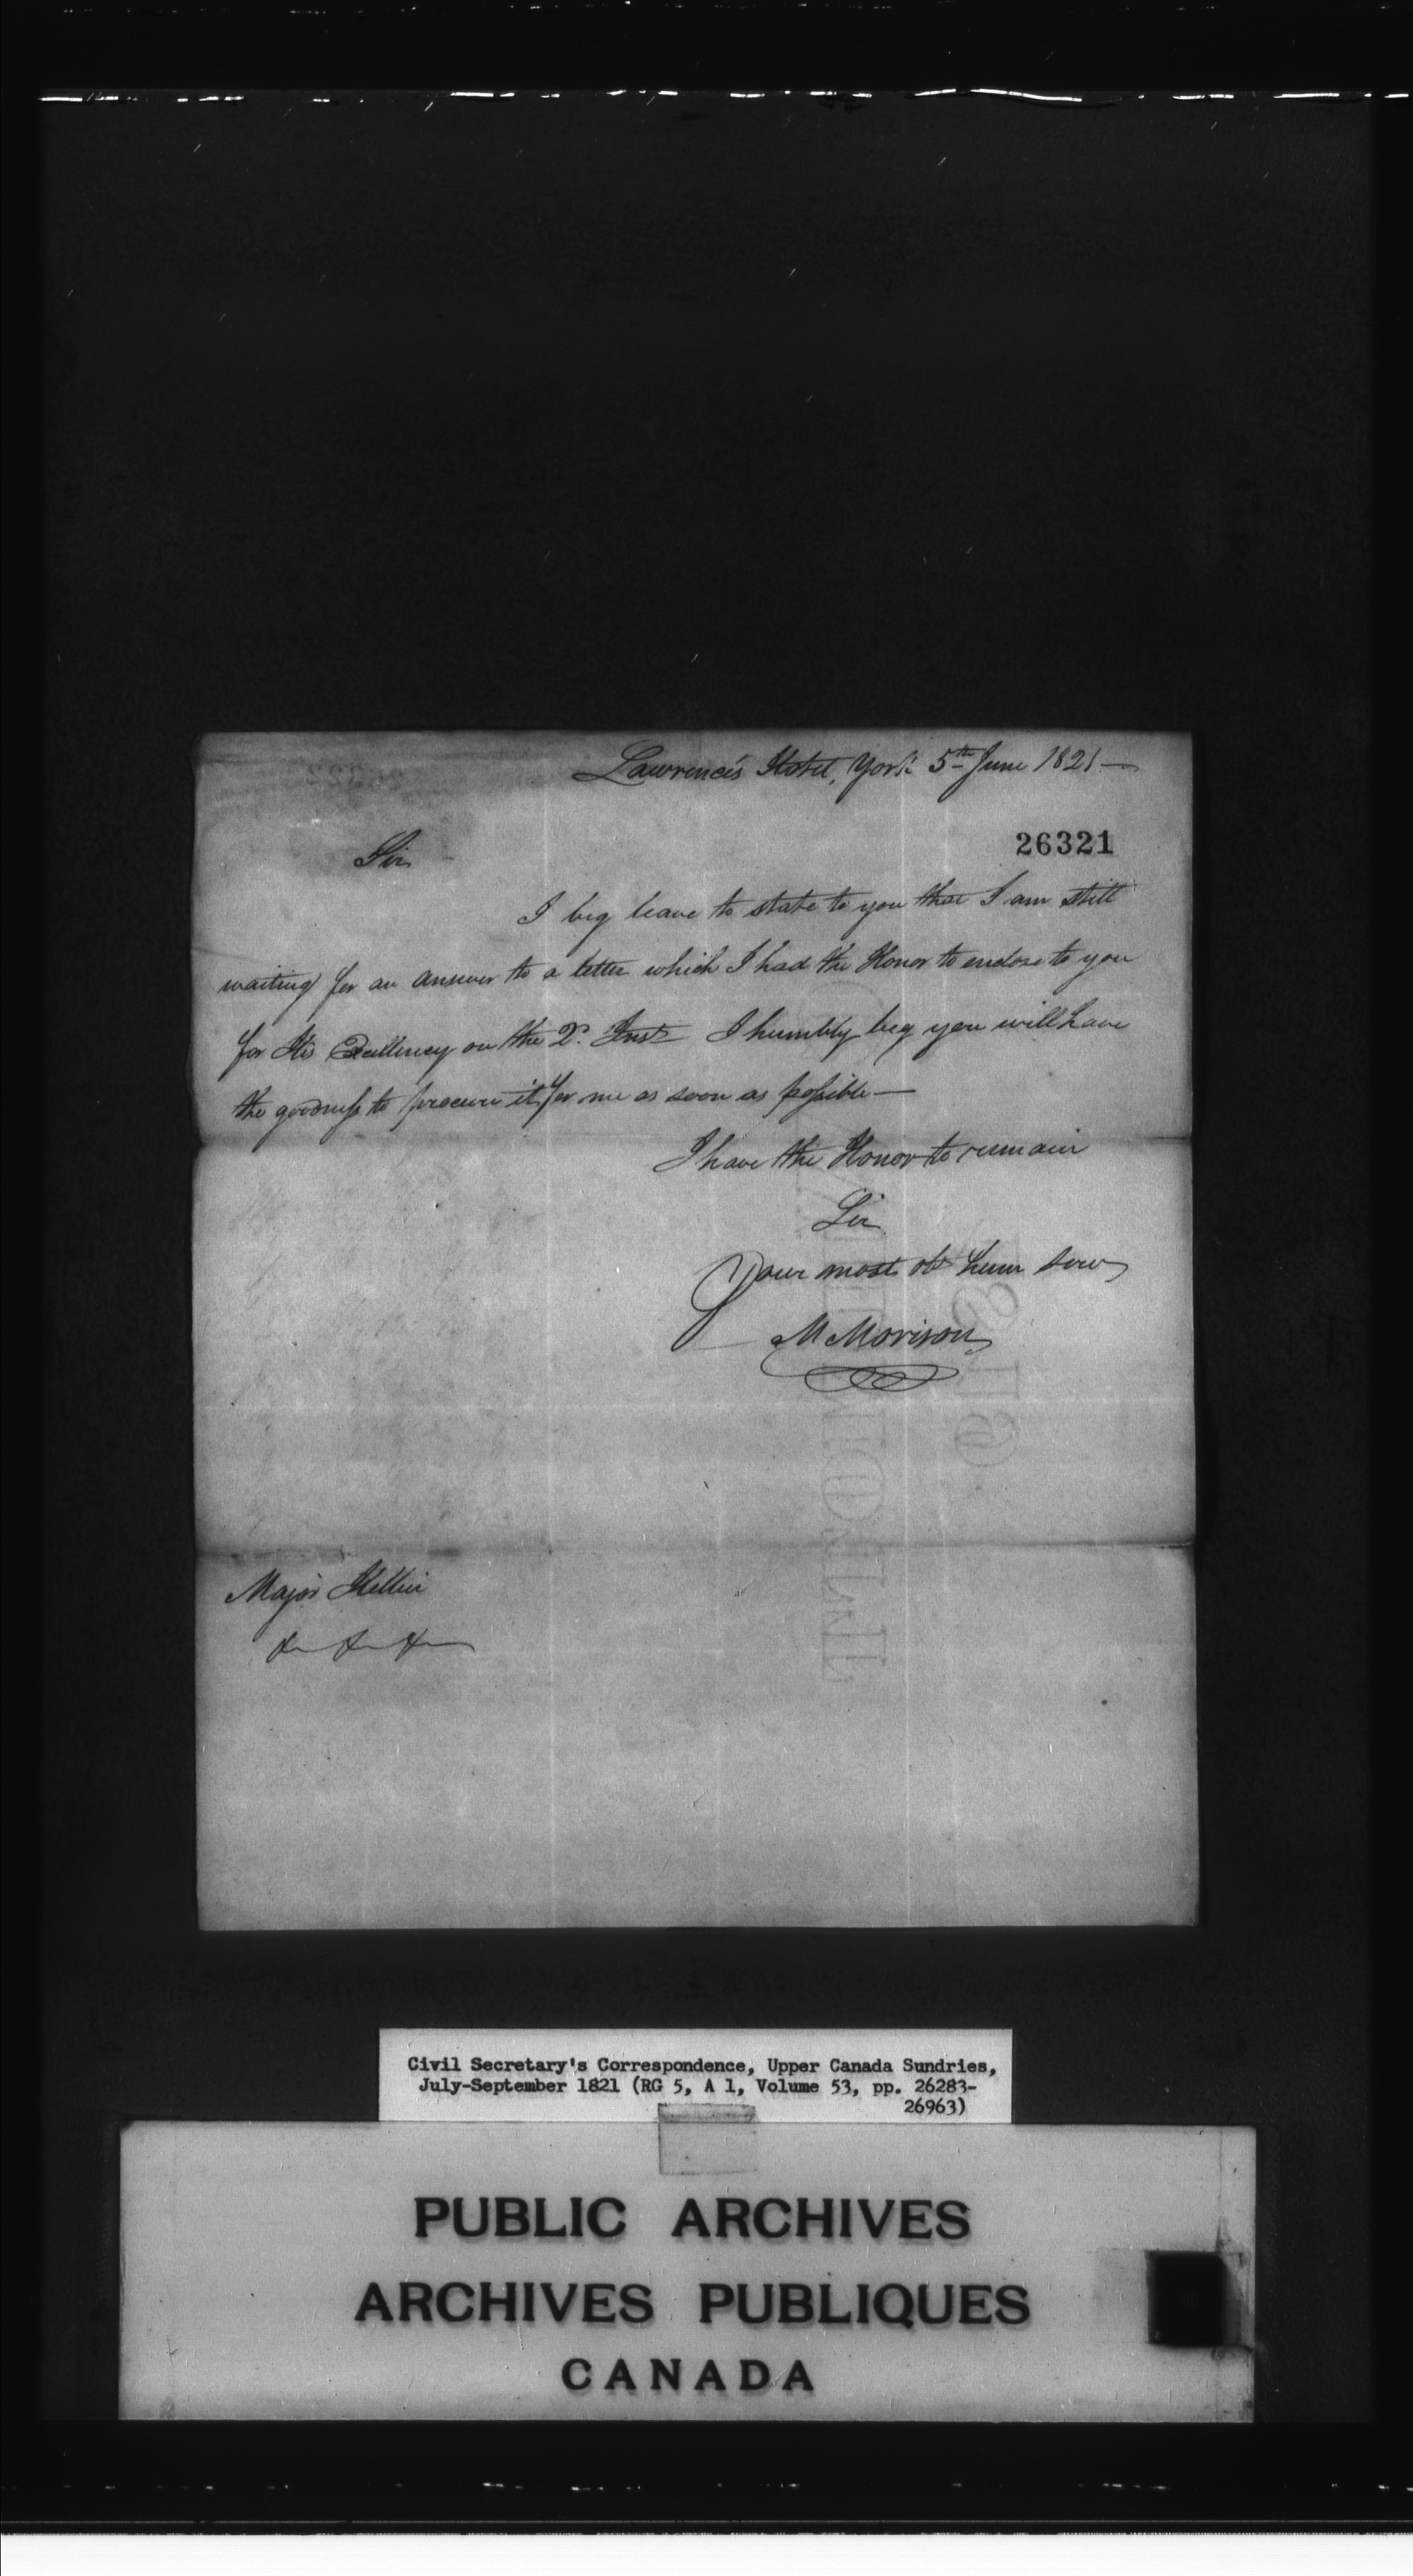 Lawrence's Hotel, York 5th June 1821—
26321
Sir
I beg leave to state to you that I am still
waiting for an answer to a letter which I had the Honor to enclose to you
for His Excellency on the 2d. Inst I humbly beg you will have
the goodness to procure it for me as soon as possible—
I have the Honor to remain
Sir
Your most obt hum serv
M Morison
Major Hillier
&c &c &c
Civil Secretary's Correspondence, Upper Canada Sundries,
July-September 1821 (RG 5, A 1, Volume 53, pp. 26283-
26963)
PUBLIC ARCHIVES
ARCHIVES PUBLIQUES
CANADA